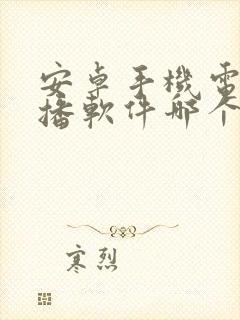 安卓手機電
播軟件哪个
寒烈